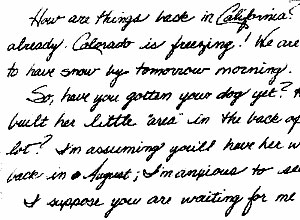 How are things back in California?
already. Colorado is freezing! We are
to have snow by tomorrow morning.
So, have you gotten your dog yet?
built her little "area" in the back of
lot? I'm assuming you'll have her w
back in August; I'm anxious to se
I suppose you are waiting for me